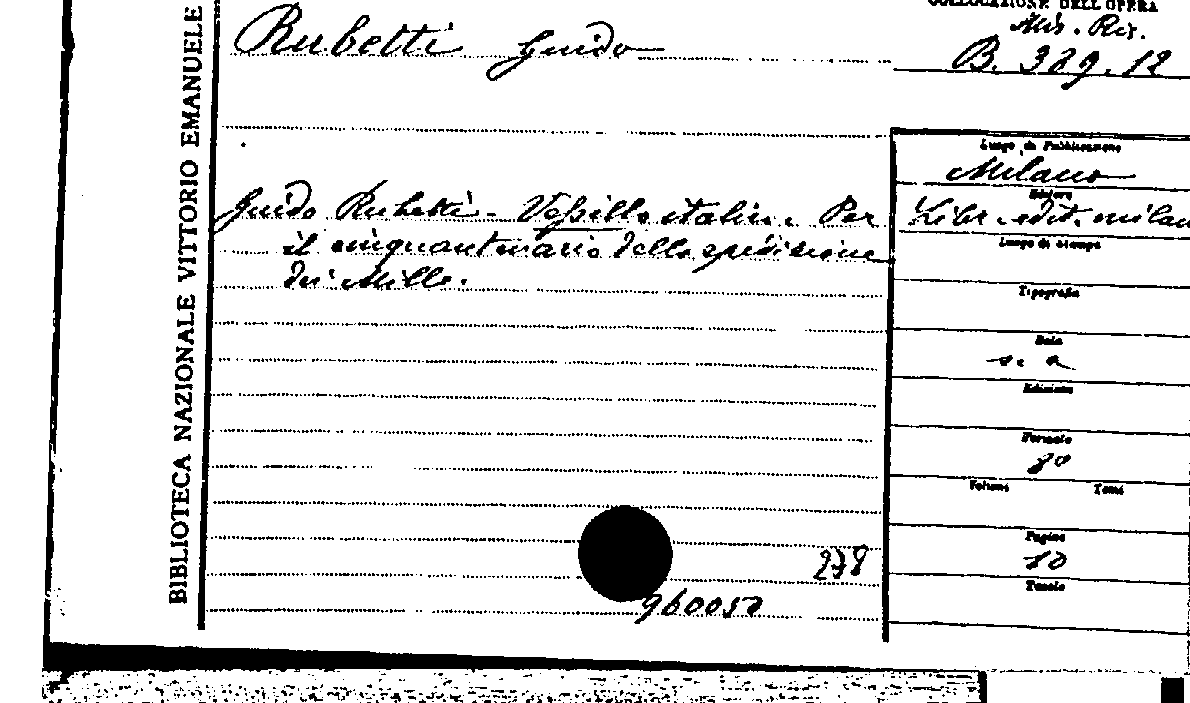 COLLOCAZIONE DELL'OPERA
Mis. Ris.
B. 389.12
Rubetti Guido
BIBLIOTECA NAZIONALE VITTORIO EMANUELE
Guido Rubetti - Vessillo italico. Per
il cinquantenario della spedizione
dei Mille.
Luogo di Pubblicazione
Milano
Editore
Libr. edit. milan
Luogo di Stampa
Tipografia
Data
s. a
Edizione
Formato
8°
Volume Tomi
Pagine
10
Tavole
278
960050